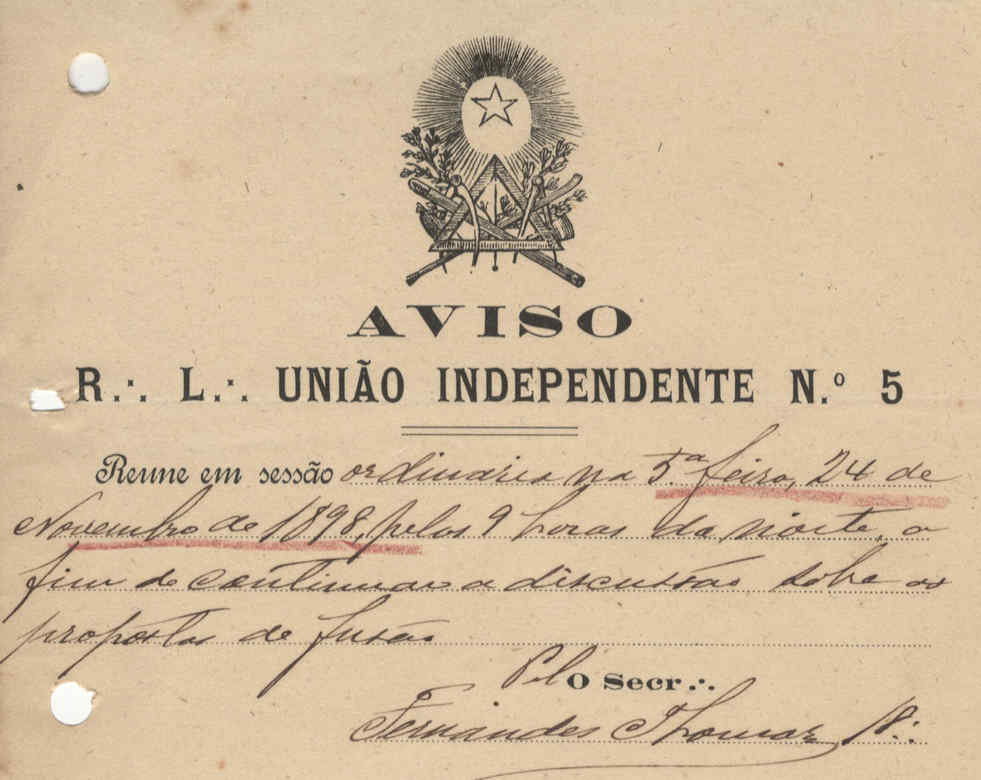 AVISO
R.∴ L.∴ UNIÃO INDEPENDENTE N.º 5
Reune em sessão ordinaria na 5.ª feira, 24 de
Novembro de 1898, pelas 9 horas da noite, a
fim de continuar a discussão sobre as
propostas de fusão
Pelo Secr∴
Fernandes Thomaz